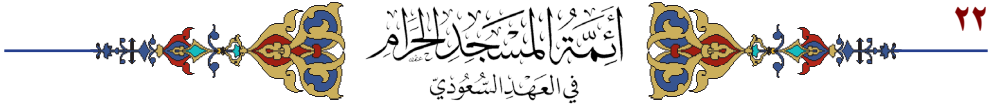 ٢٢
أَئِمَّةُ المَسْجِدِ الحَرَامِ
في العَهْدِ السُّعُودِيّ